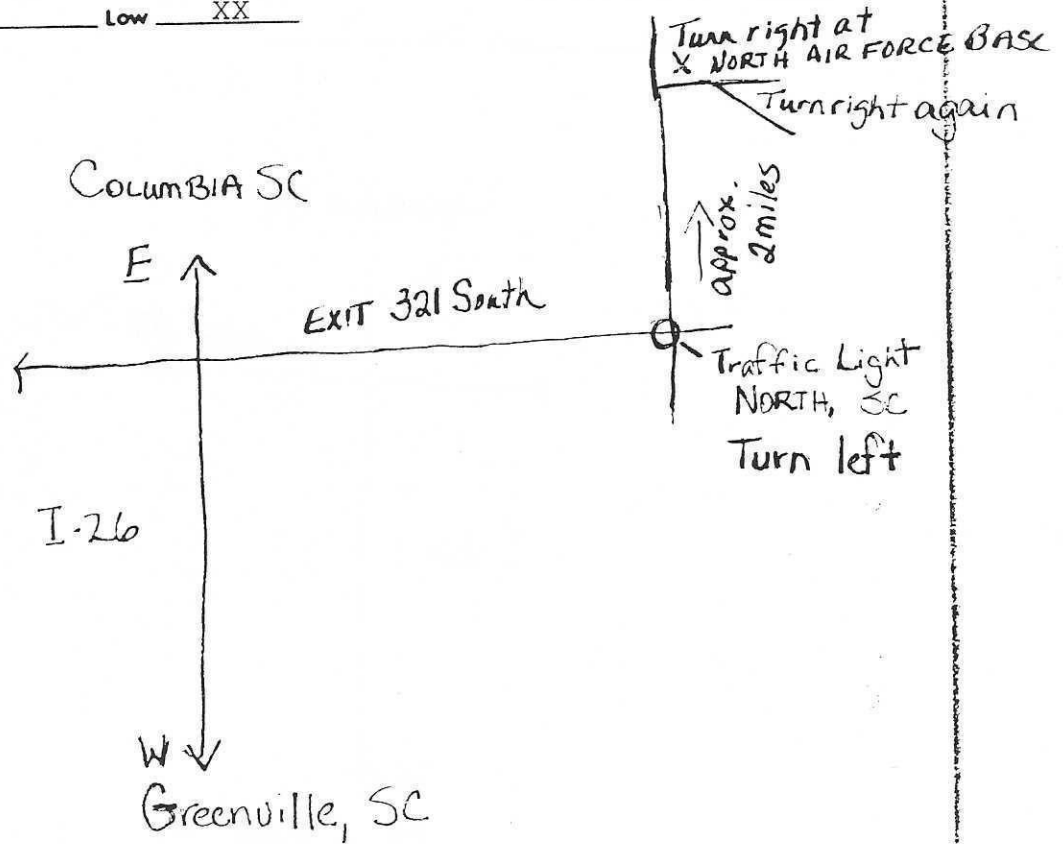 Low XX
Turn right at
X NORTH AIR FORCE BASE
Turn right again
COLUMBIA SC
E
approx.
2 miles
EXIT 321 South
Traffic Light
NORTH, SC
Turn left
I-26
W
Greenville, SC